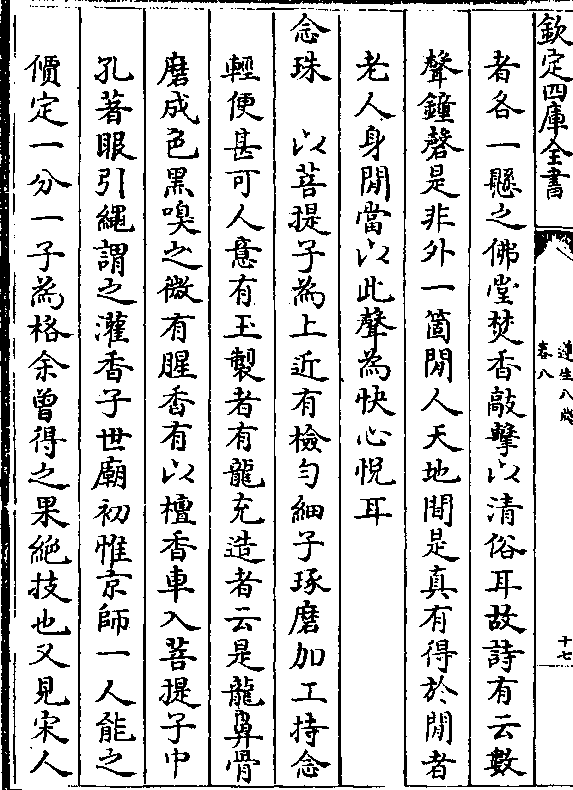 欽定四庫全書
遵生八牋
卷八
十七
者各一懸之佛堂焚香敲擊以清俗耳故詩有云數
聲鐘磬是非外一箇閒人天地間是真有得於閒者
老人身閒當以此聲為快心悅耳
念珠　以菩提子為上近有檢勻細子琢磨加工持念
輕便甚可人意有玉製者有龍充造者云是龍鼻骨
磨成色黑嗅之微有腥香有以檀香車入菩提子中
孔著眼引繩謂之灌香子世廟初惟京師一人能之
價定一分一子為格余曾得之果絕技也又見宋人